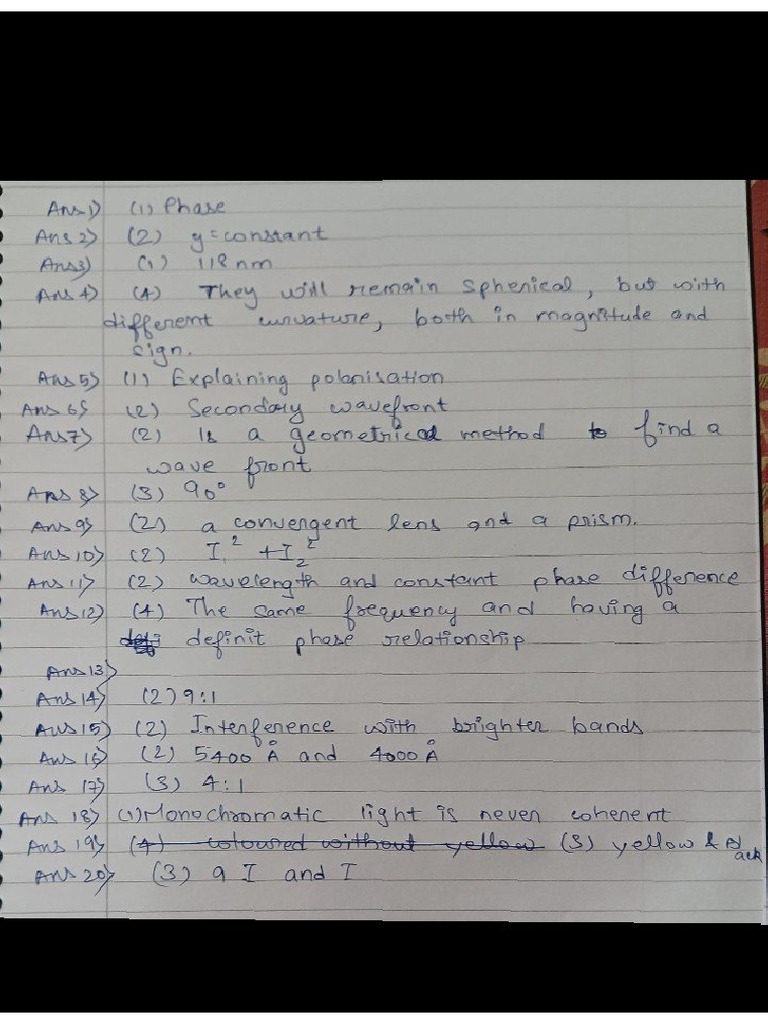 Ans1) (1) Phase
Ans 2) (2) y = constant
Ans3) (1) 118 nm
Ans 4) (4) They will remain spherical, but with
different curvature, both in magnitude and
sign.
Ans 5) (1) Explaining polarisation
Ans 6) (2) Secondary wavefront
Ans7) (2) Is a geometrical method to find a
wave front
Ans 8) (3) 90°
Ans 9) (2) a convergent lens and a prism.
Ans 10) (2) I₁² + I₂²
Ans 11) (2) wavelength and constant phase difference
Ans 12) (4) The same frequency and having a
definit phase relationship
Ans 13)
Ans 14) (2) 9:1
Ans 15) (2) Interference with brighter bands
Ans 16) (2) 5400 Å and 4000 Å
Ans 17) (3) 4:1
Ans 18) (1) Monochromatic light is never coherent
Ans 19) (4) coloured without yellow (3) yellow &
Ans 20) (3) 9 I and I